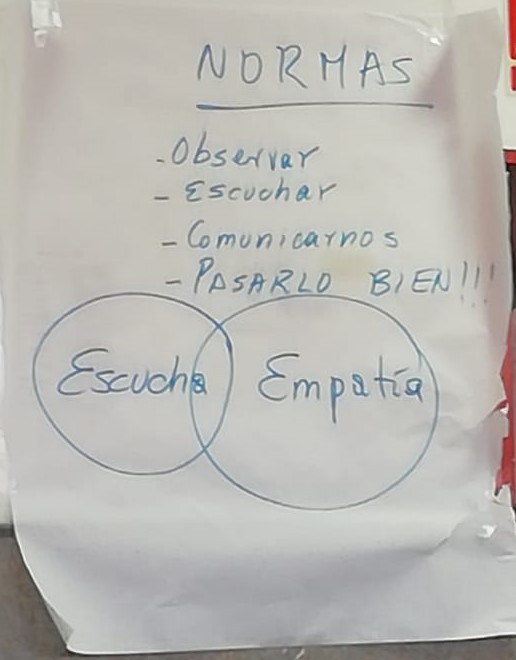 NORMAS
- Observar
- Escuchar
- Comunicarnos
- PASARLO BIEN!!!
Escucha Empatía